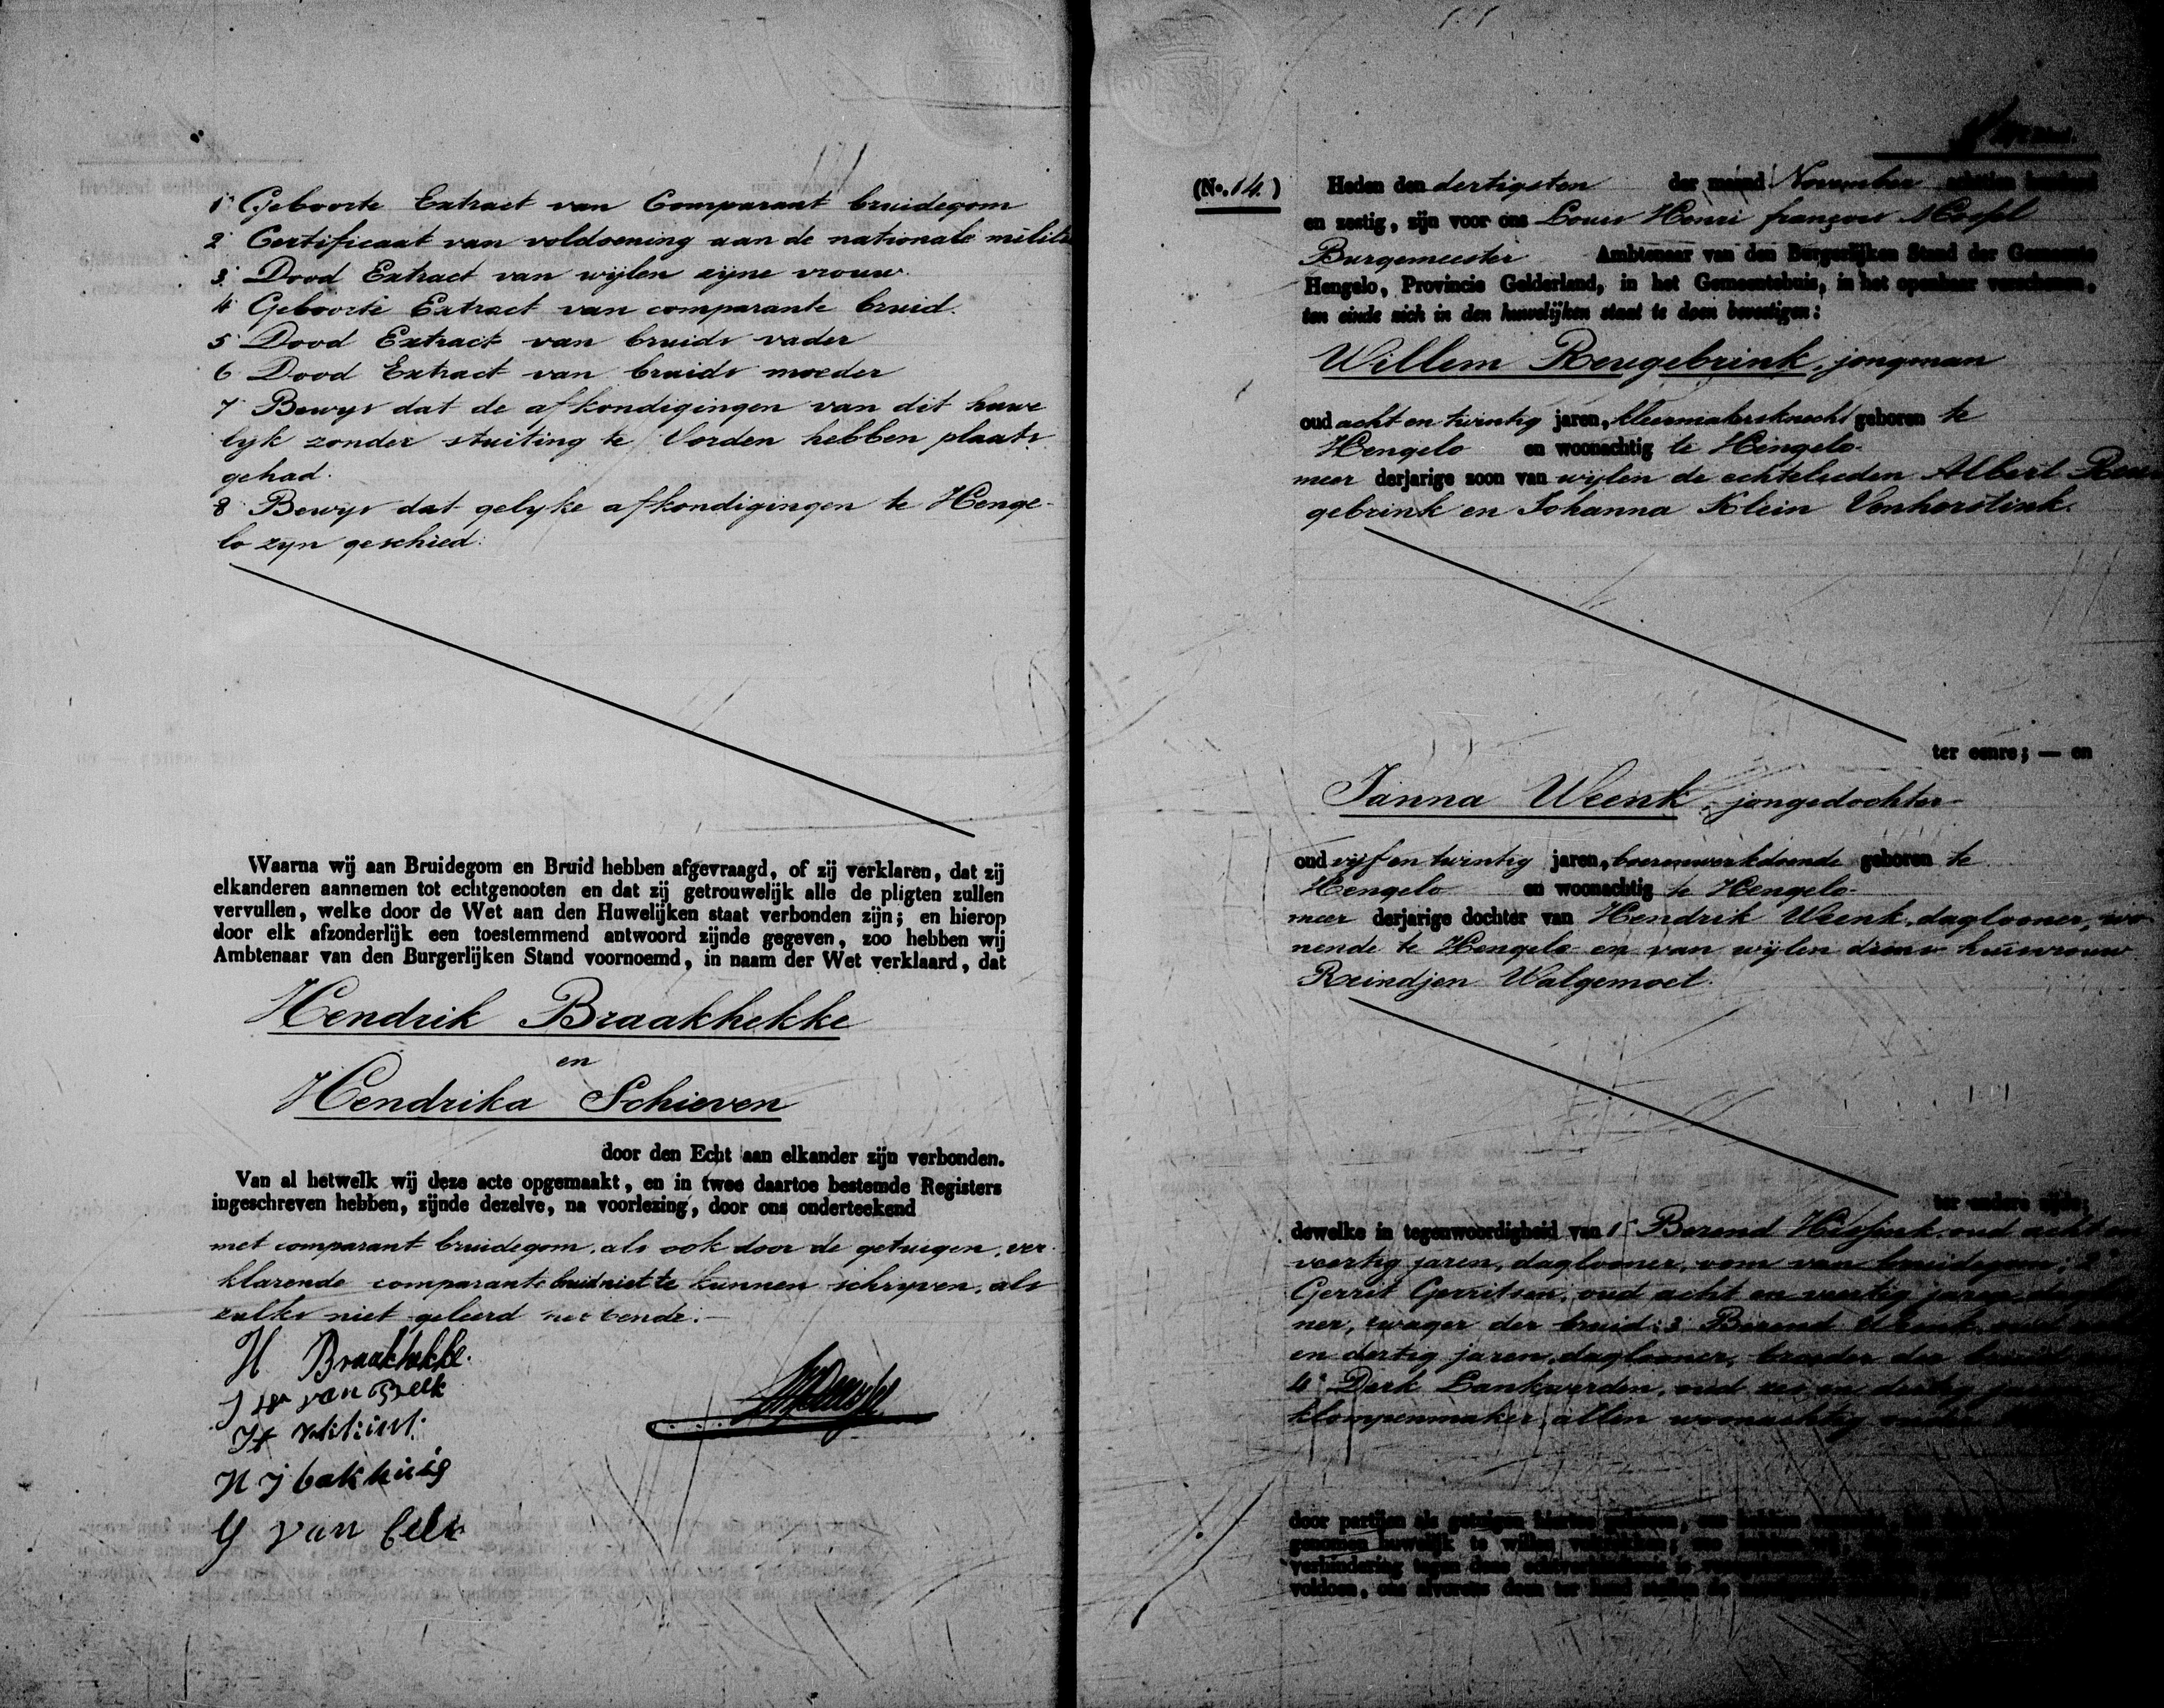 1° Geboorte Extract van Comparant bruidegom
2° Certificaat van voldoening aan de nationale militie
3. Dood Extract van wijlen zijne vrouw.
4° Geboorte Extract van comparante bruid.
5° Dood Extract van bruids vader
6 Dood Extract van bruids moeder
7 Bewys dat de afkondigingen van dit huwe
lyk zonder stuiting te Vorden hebben plaats
gehad.
8 Bewys dat gelyke afkondigingen te Henge-
lo zyn geschied.
Waarna wij aan Bruidegom en Bruid hebben afgevraagd, of zij verklaren, dat zij
elkanderen aannemen tot echtgenooten en dat zij getrouwelijk alle de pligten zullen
vervullen, welke door de Wet aan den Huwelijken staat verbonden zijn; en hierop
door elk afzonderlijk een toestemmend antwoord zijnde gegeven, zoo hebben wij
Ambtenaar van den Burgerlijken Stand voornoemd, in naam der Wet verklaard, dat
Hendrik Braakhekke
en
Hendrika Schieven
door den Echt aan elkander zijn verbonden.
Van al hetwelk wij deze acte opgemaakt, en in twee daartoe bestemde Registers
ingeschreven hebben, zijnde dezelve, na voorlezing, door ons onderteekend
met comparant bruidegom, als ook door de getuigen, ver
klarende comparante bruid niet te kunnen schryven, als
zulks niet geleerd hebbende.
H Braakhekke.
van Beek
H
H J bakhuis
G van
(No. 14.) Heden den dertigsten der maand November achttien honderd
en zestig, zijn voor ons Louis Henri françois
Burgemeester Ambtenaar van den Burgerlijken Stand der Gemeente
Hengelo, Provincie Gelderland, in het Gemeentehuis, in het openbaar verschenen,
ten einde zich in den huwelijken staat te doen bevestigen:
Willem Reugebrink, jongman
oud acht en twintig jaren, kleermakersknecht geboren te
Hengelo en woonachtig te Hengelo
meer derjarige zoon van wijlen de echtelieden Albert Reu
gebrink en Johanna Klein Venherstink.
ter eenre; — en
Janna Weenk, jongedochter
oud vijf en twintig jaren, boerenwerkdoende geboren te
Hengelo en woonachtig te Hengelo
meer derjarige dochter van Hendrik Weenk, daglooner, wo
nende te Hengelo en van wijlen diens huisvrouw
Reindjen Walgemoet.
ter andere zijde;
dewelke in tegenwoordigheid van 1° Berend oud acht en
veertig jaren, daglooner, oom van bruidegom; 2°
Gerrit Gerritsen, oud acht en veertig jaren
ner, zwager der bruid; 3 Berend Weenk, oud
en dertig jaren, daglooner, broeder der bruid
4° Derk Lankverden, oud zes en dertig
klompenmaker, allen woonachtig
door partijen als getuigen
genomen huwelijk te willen
verhindering tegen deze
voldoen, ons alvorens doen ter hand stellen de